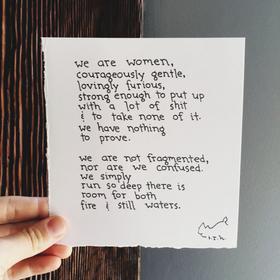 we are women,
courageously gentle,
lovingly furious,
strong enough to put up
with a lot of shit
& to take none of it.
we have nothing
to prove.
we are not fragmented,
nor are we confused.
we simply
run so deep there is
room for both
fire & still waters.